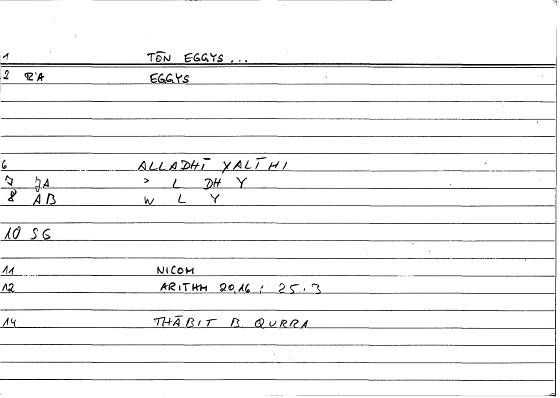 1 TŌN EGGYS...
2 RA EGGYS
6 ALLADHĪ YALĪHI
7 JA > L DH Y
8 AB W L Y
10 SG
11 NICOM
12 ARITHM 20,16 ; 25.3
14 THĀBIT B. QURRA